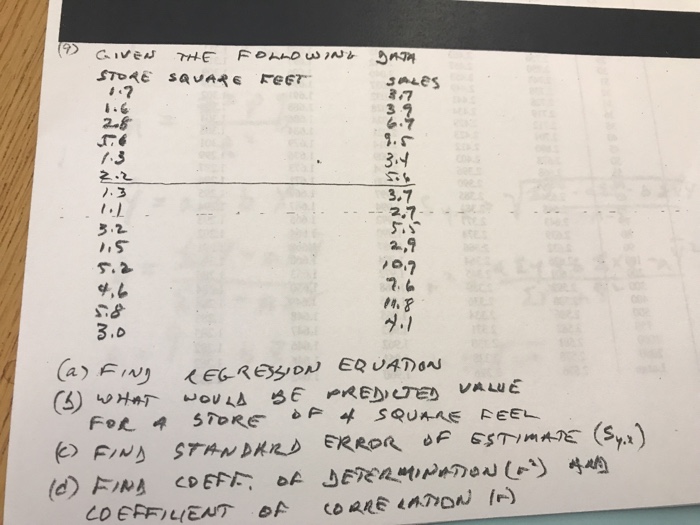 (9) GIVEN THE FOLLOWING DATA
STORE SQUARE FEET SALES
1.7 3.7
1.6 3.9
2.8 6.7
5.6 9.5
1.3 3.4
2.2 5.6
1.3 3.7
1.1 2.7
3.2 5.5
1.5 2.9
5.2 10.7
4.6 7.6
5.8 11.8
3.0 4.1
(a) FIND REGRESSION EQUATION
(b) WHAT WOULD BE PREDICTED VALUE
FOR A STORE OF 4 SQUARE FEEL
(c) FIND STANDARD ERROR OF ESTIMATE (Sy.x)
(d) FIND COEFF. OF DETERMINATION (r²) AND
COEFFICIENT OF CORRELATION (r)